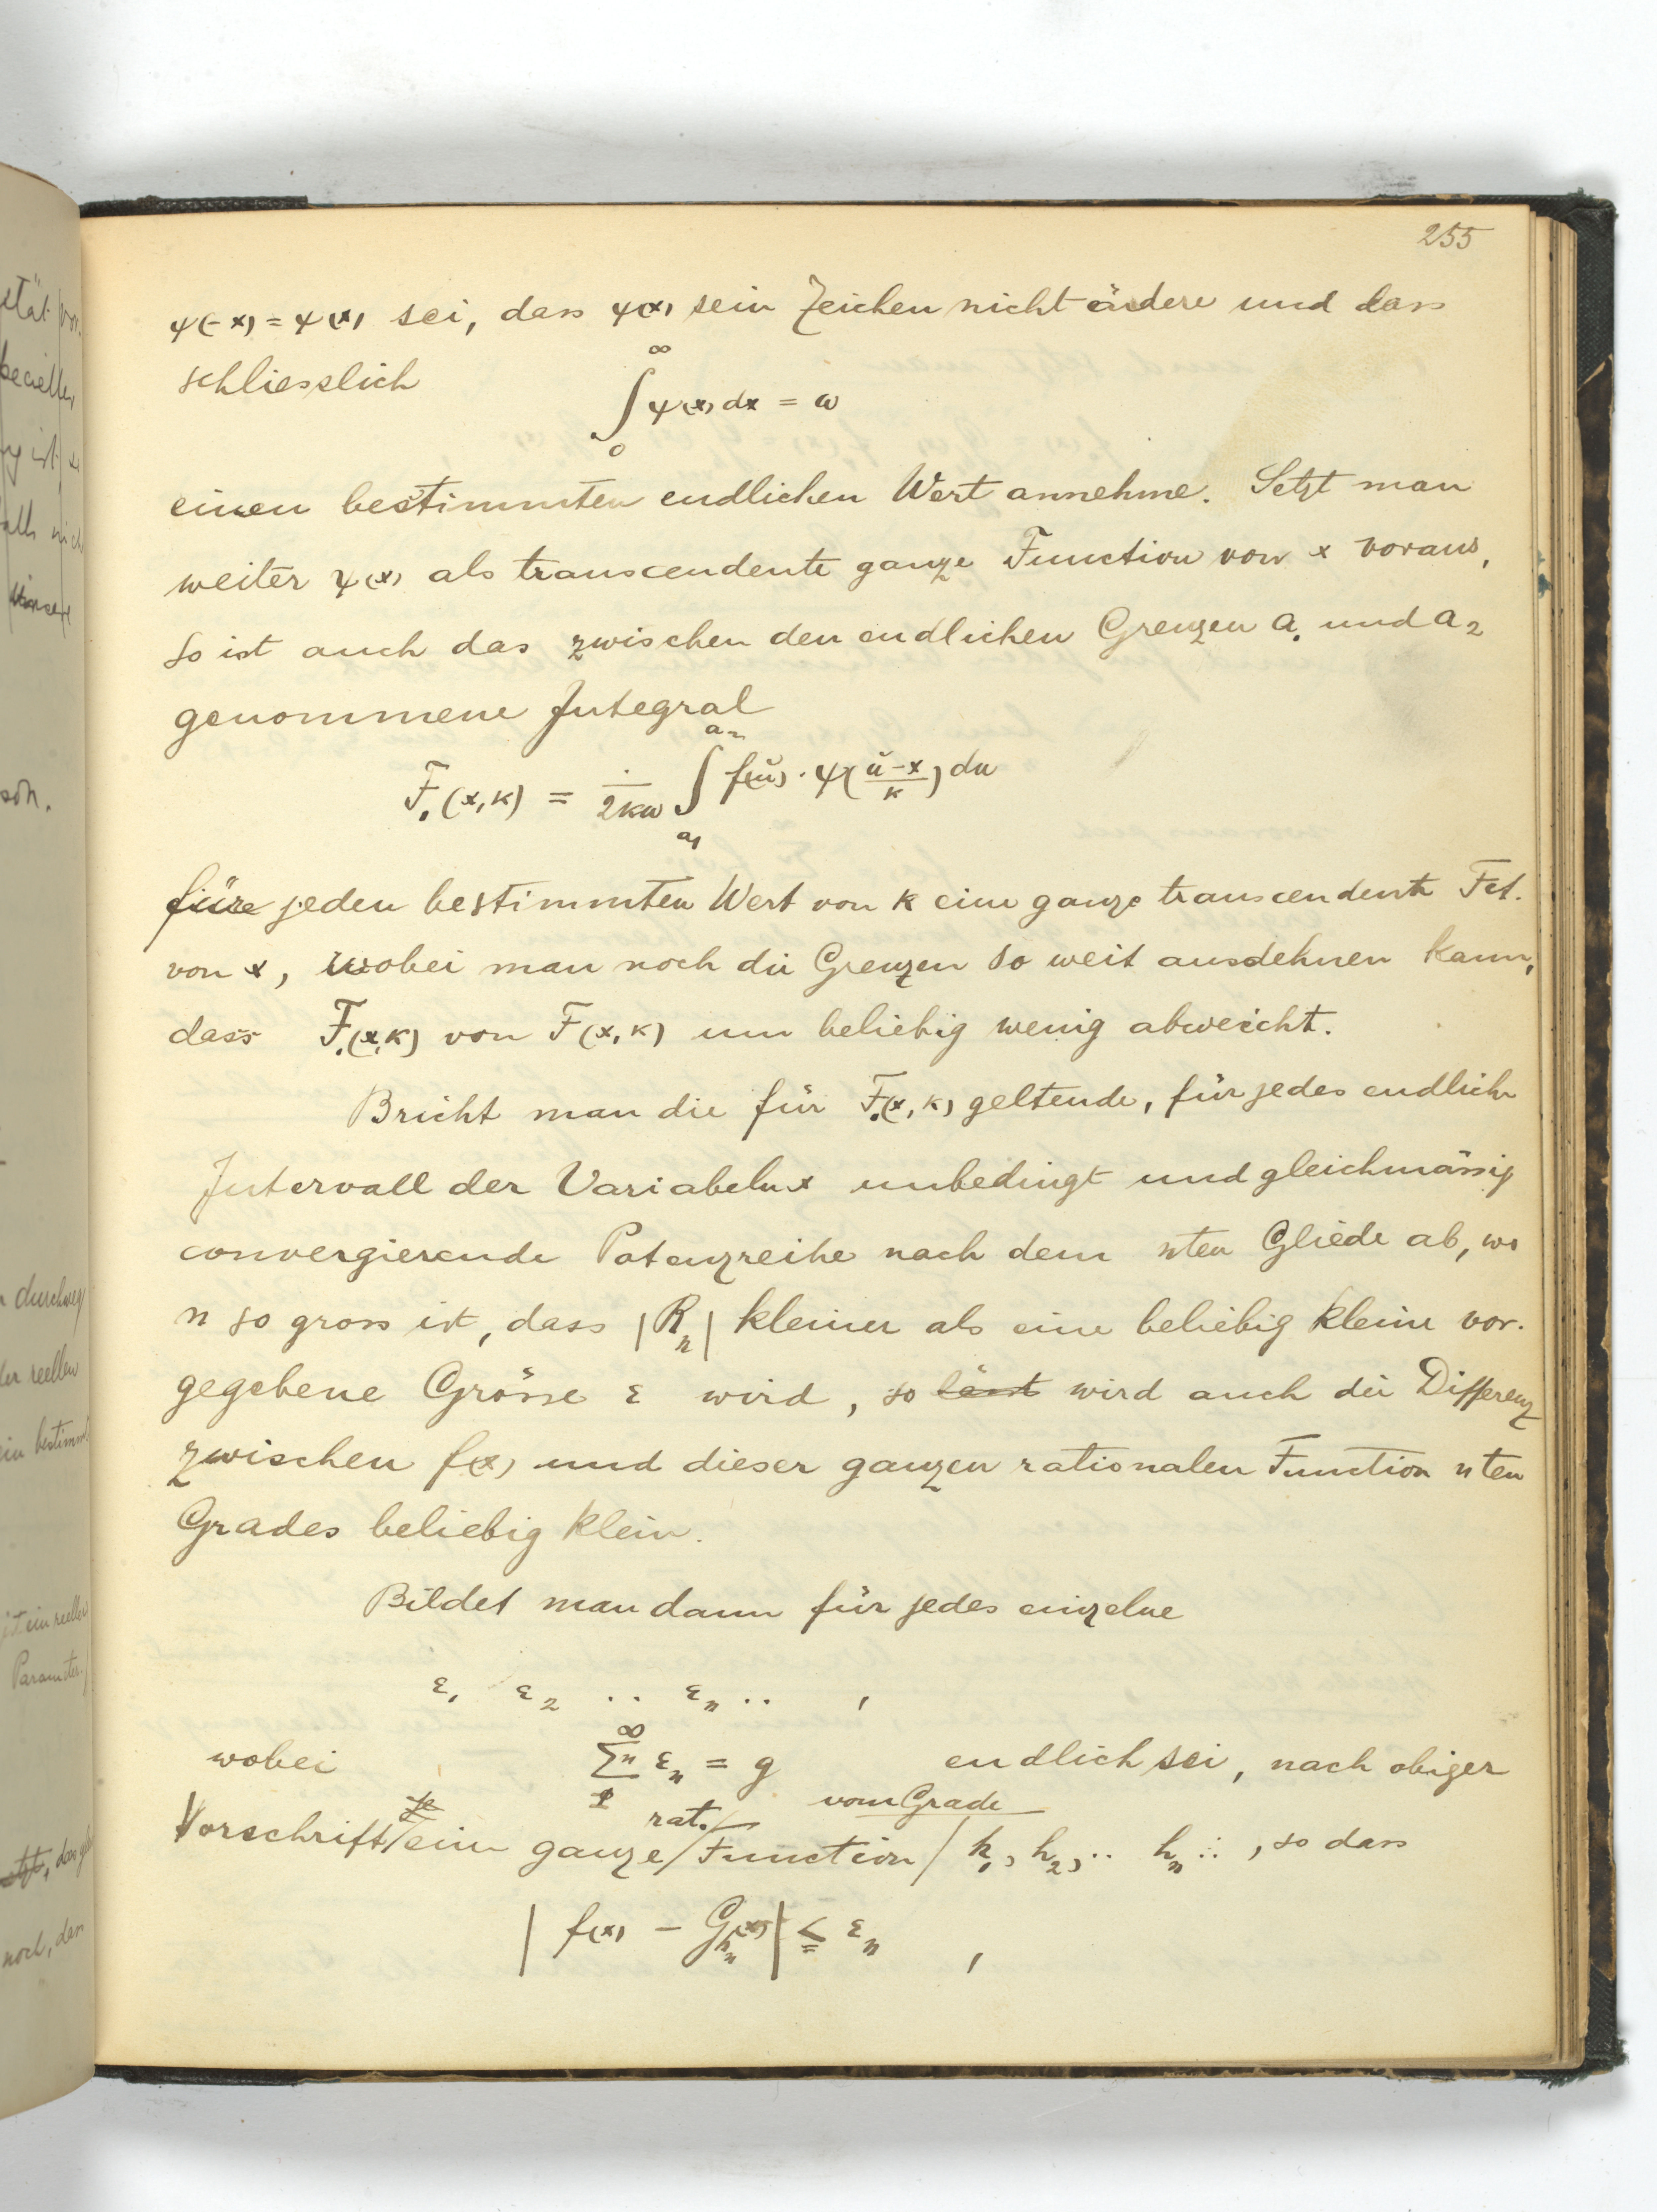 255
ψ(-x) = ψ(x) sei, dass ψ(x) sein Zeichen nicht ändere und dass
schliesslich
∫₀^∞ ψ(x) dx = ω
einen bestimmten endlichen Wert annehme. Setzt man
weiter ψ(x) als transcendente ganze Function von x voraus,
so ist auch das zwischen den endlichen Grenzen a₁ und a₂
genommene Integral
F₁(x, k) = 1/2kω ∫_{a₁}^{a₂} f(u) · ψ((u-x)/k) du
für jeden bestimmten Wert von k eine ganze transcendente Fct.
von x, wobei man noch die Grenzen so weit ausdehnen kann,
dass F₁(x, k) von F(x, k) um beliebig wenig abweicht.
Bricht man die für F₁(x, k) geltende, für jedes endliche
Intervall der Variabeln x unbedingt und gleichmässig
convergierende Potenzreihe nach dem nten Gliede ab, wo
n so gross ist, dass |Rₙ| kleiner als eine beliebig kleine vor-
gegebene Grösse ε wird, so lässt wird auch die Differenz
zwischen f(x) und dieser ganzen rationalen Function nten
Grades beliebig klein.
Bildet man dann für jedes einzelne
ε₁ ε₂ .. εₙ .. ,
wobei ∑ₙ₁^∞ εₙ = g endlich sei, nach obiger
rat. vom Grade
Vorschrift eine ganze Function h₁, h₂, .. hₙ .. , so dass
| f(x) - G_{hₙ}(x) | ≦ εₙ ,